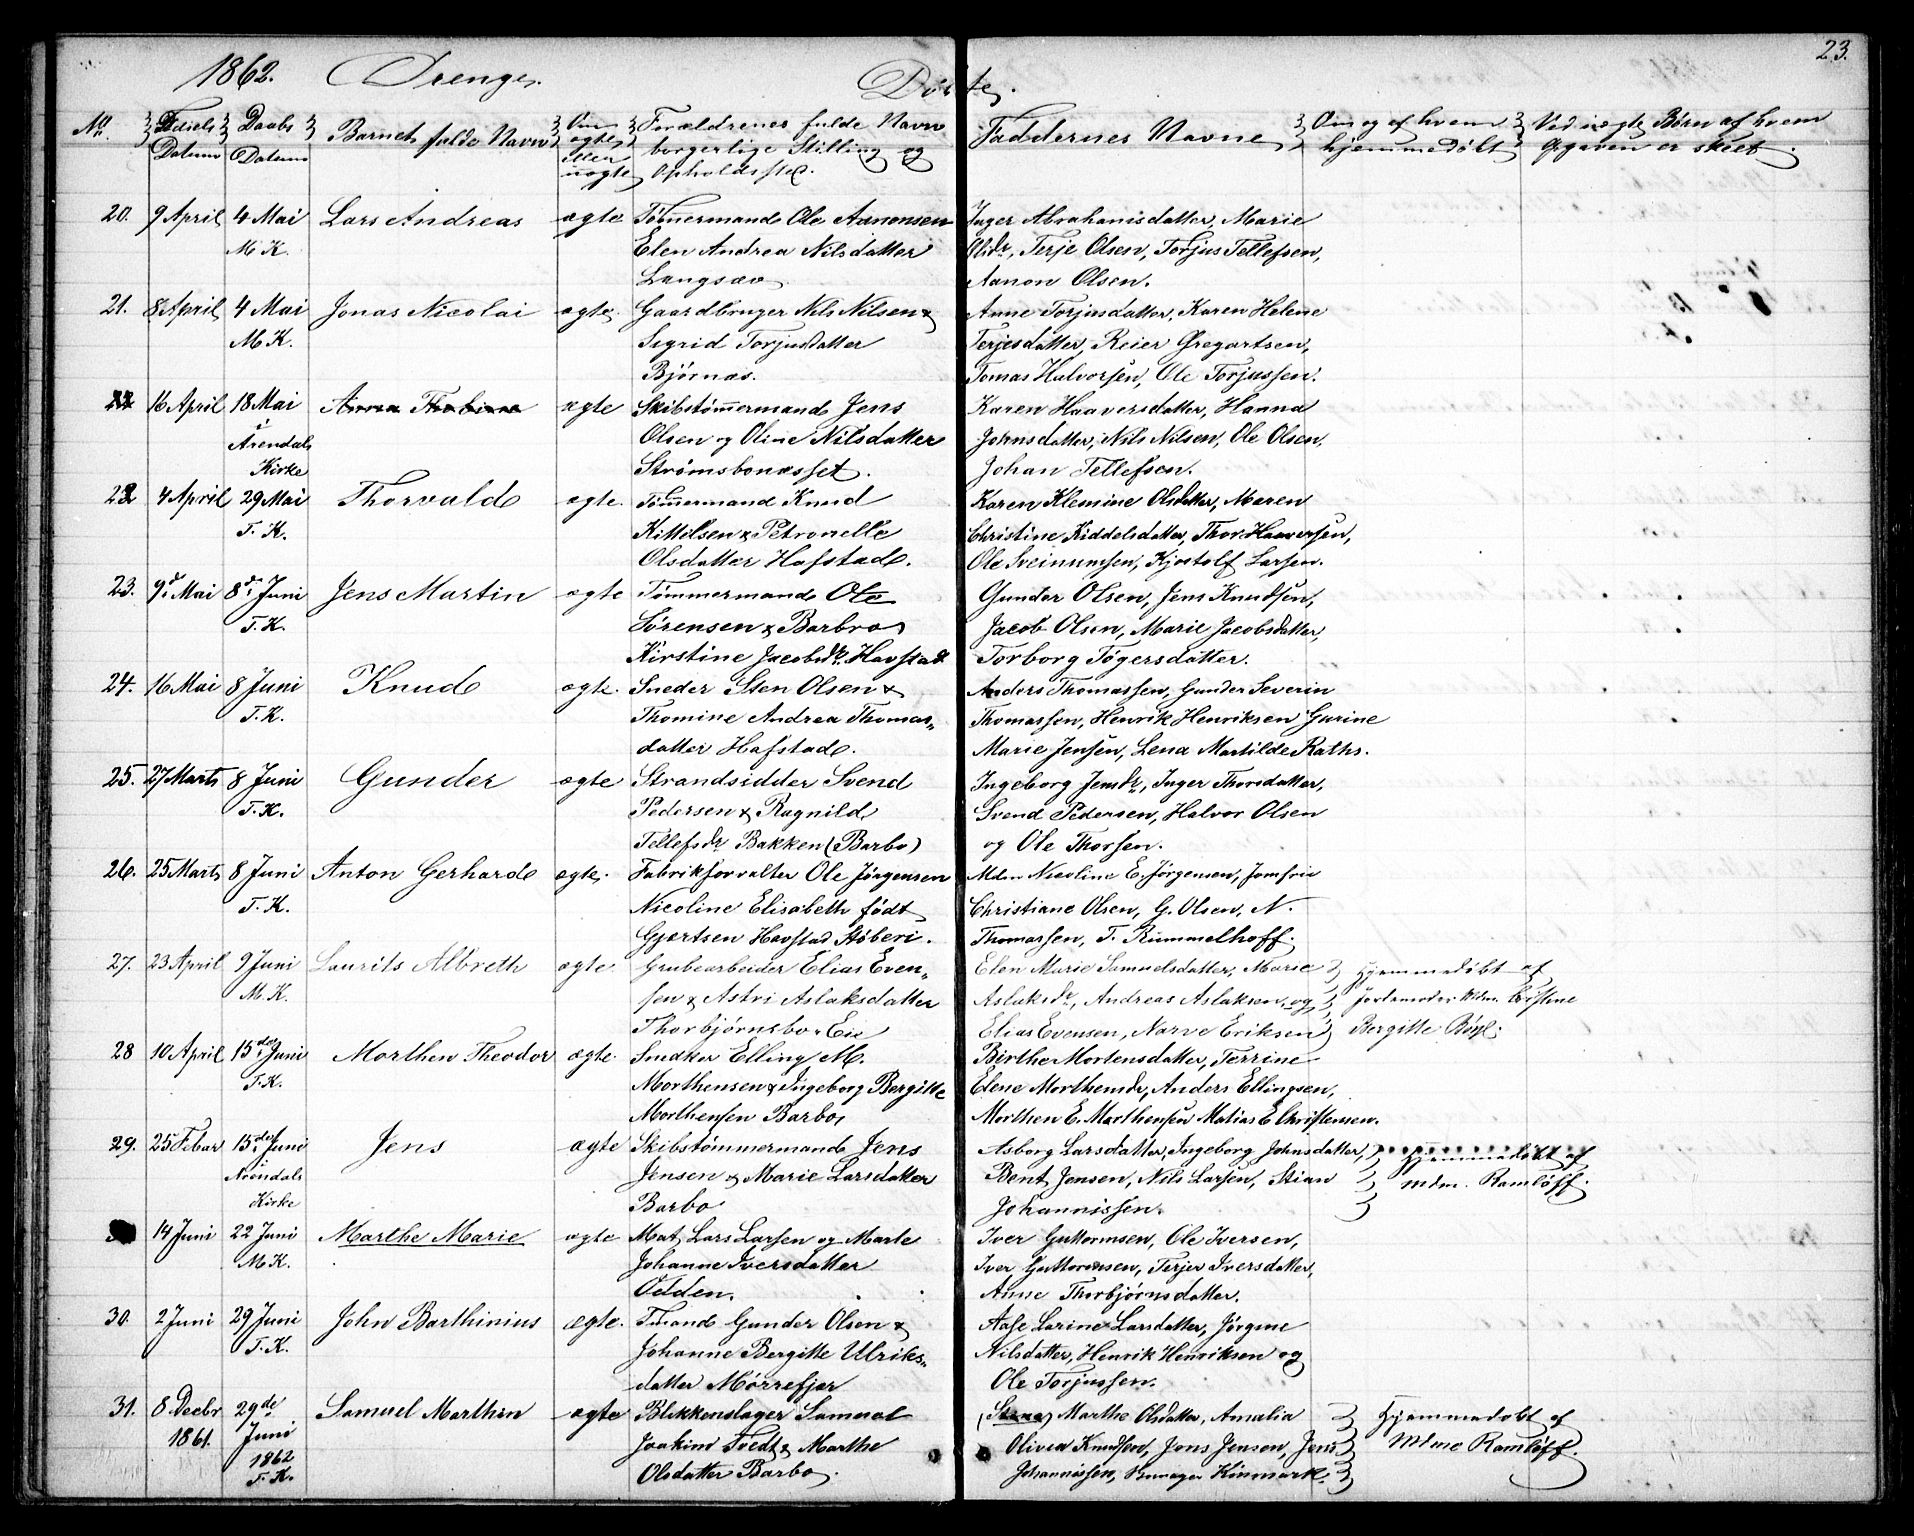 1862. Drenge. Døbte. 23.
No. Fødsels Datum Daabs Datum Barnets fulde Navn Om ægte eller uægte Forældrenes fulde Navn borgerlige Stilling og Opholdssted. Faddernes Navne Om og af hvem hjemmedøbt Ved uægte Børn af hvem Opgaven er skeet.
20. 9 April 4 Mai Lars Andreas ægte Tømmermand Ole Aanonsen Inger Abrahamsdatter, Marie
M. K. Elen Andrea Nilsdatter Olsdr, Terje Olsen, Torjus Tellefsen,
Langsæv Aanon Olsen.
21. 8 April 4 Mai Jonas Nicolai ægte. Gaardbruger Nils Nilsen & Anne Torjusdatter, Karen Helene
M. K. Sigrid Torjusdatter Terjesdatter, Reier Gregartsen,
Bjørnæs. Tomas Halvorsen, Ole Torjussen.
22 16 April 18 Mai Anna Thobine ægte Skibstømmermand Jens Karen Haaversdatter, Hanna
i Arendals Olsen og Oline Nilsdatter Johnsdatter, Nils Nilsen, Ole Olsen,
Kirke Strømsbonæsset. Johan Tellefsen.
22 4 April 29 Mai Thorvald ægte. Tømmermand Knud Karen Klemine Olsdatter, Maren
T. K. Kittilsen & Petronelle Christine Kiddelsdatter, Thor Haaversen,
Olsdatter Hafstad. Ole Sveinumsen, Kjostolf Larsen.
23. 9d Mai 8de Juni Jens Martin ægte Tømmermand Ole Gunder Olsen, Jens Knudsen,
T. K. Sørensen & Barbro Jacob Olsen, Marie Jacobsdatter,
Kirstine Jacobsdr. Havstad Torborg Tøgersdatter.
24. 16 Mai 8 Juni Knud ægte. Sneder Sten Olsen & Anders Thomassen, Gunder Severin
T. K. Thomine Andrea Thomas- Thomassen, Henrik Henriksen Gurine
datter Hafstad. Marie Jensen, Lena Martilde Raths.
25. 27 Marts 8 Juni Gunder ægte Strandsidder Svend Ingeborg Jensdr, Inger Thorsdatter,
T. K. Pedersen & Ragnild Svend Pedersen, Halvor Olsen
Tellefsdr Bakken (Barbo) og Ole Thorsen.
26. 25 Marts 8 Juni Anton Gerhard ægte. Fabrikforvalter Ole Jørgensen Mdm Nicoline E. Jørgensen, Jomfru
T. K. Nicoline Elisabeth født Christiane Olsen, G. Olsen, N.
Gjertsen Havstad Støberi. Thomassen, T. Rummelhoff.
27. 23 April 9 Juni Laurits Albreth ægte Grubearbeider Elias Even- Elen Marie Samuelsdatter, Marie Hjemmedøbt af
M. K. sen & Astri Aslaksdatter Aslaksdr, Andreas Aslaksen, og Jordemoder Mdm. Cristine
Thorbjørnsbo Eie Elias Evensen, Narve Eriksen Bergitte Bøyl.
28 10 April 15de Juni Morthen Theodor ægte Snedker Elling M. Birthe Mortensdatter, Terrine
T. K. Morthensen & Ingeborg Bergitte Elene Morthensdr, Anders Ellingsen,
Morthensen Barbo Morthen E. Morthensen Matias E Christensen.
29. 25 Febuar 15de Juni Jens ægte Skibstømmermand Jens Asborg Larsdatter, Ingeborg Johnsdatter, Hjemmedøbt af
Arendals Jensen & Marie Larsdatter Bent Jensen, Nils Larsen, Stian Mdm. Ramløff.
Kirke Barbo Johannissen.
14 Juni 22 Juni Marthe Marie ægte Mat. Lars Larsen og Marte Iver Guttormsen, Ole Iversen,
M K. Johanne Iversdatter Iver Guttormsen, Terjer Iversdatter,
Odden. Anne Thorbjørnsdatter.
30. 2 Juni 29 Juni John Barthinius ægte. Tmand Gunder Olsen & Aase Larine Larsdatter, Jørgine
T. K. Johanne Bergitte Ulriks- Nilsdatter, Henrik Henriksen og
datter Mørrefjær Ole Torjussen.
31. 8 Decbr 29de Samuel Marthin ægte Blikkenslager Samuel Marthe Olsdatter, Amalia Hjemmedøbt af
1861. Juni Joakim Tvedt & Marthe Olivia Knudsen, Jens Jensen, Jens Mdme Ramløff.
1862 Olsdatter Barbo. Johannissen, Kinmark
T. K.